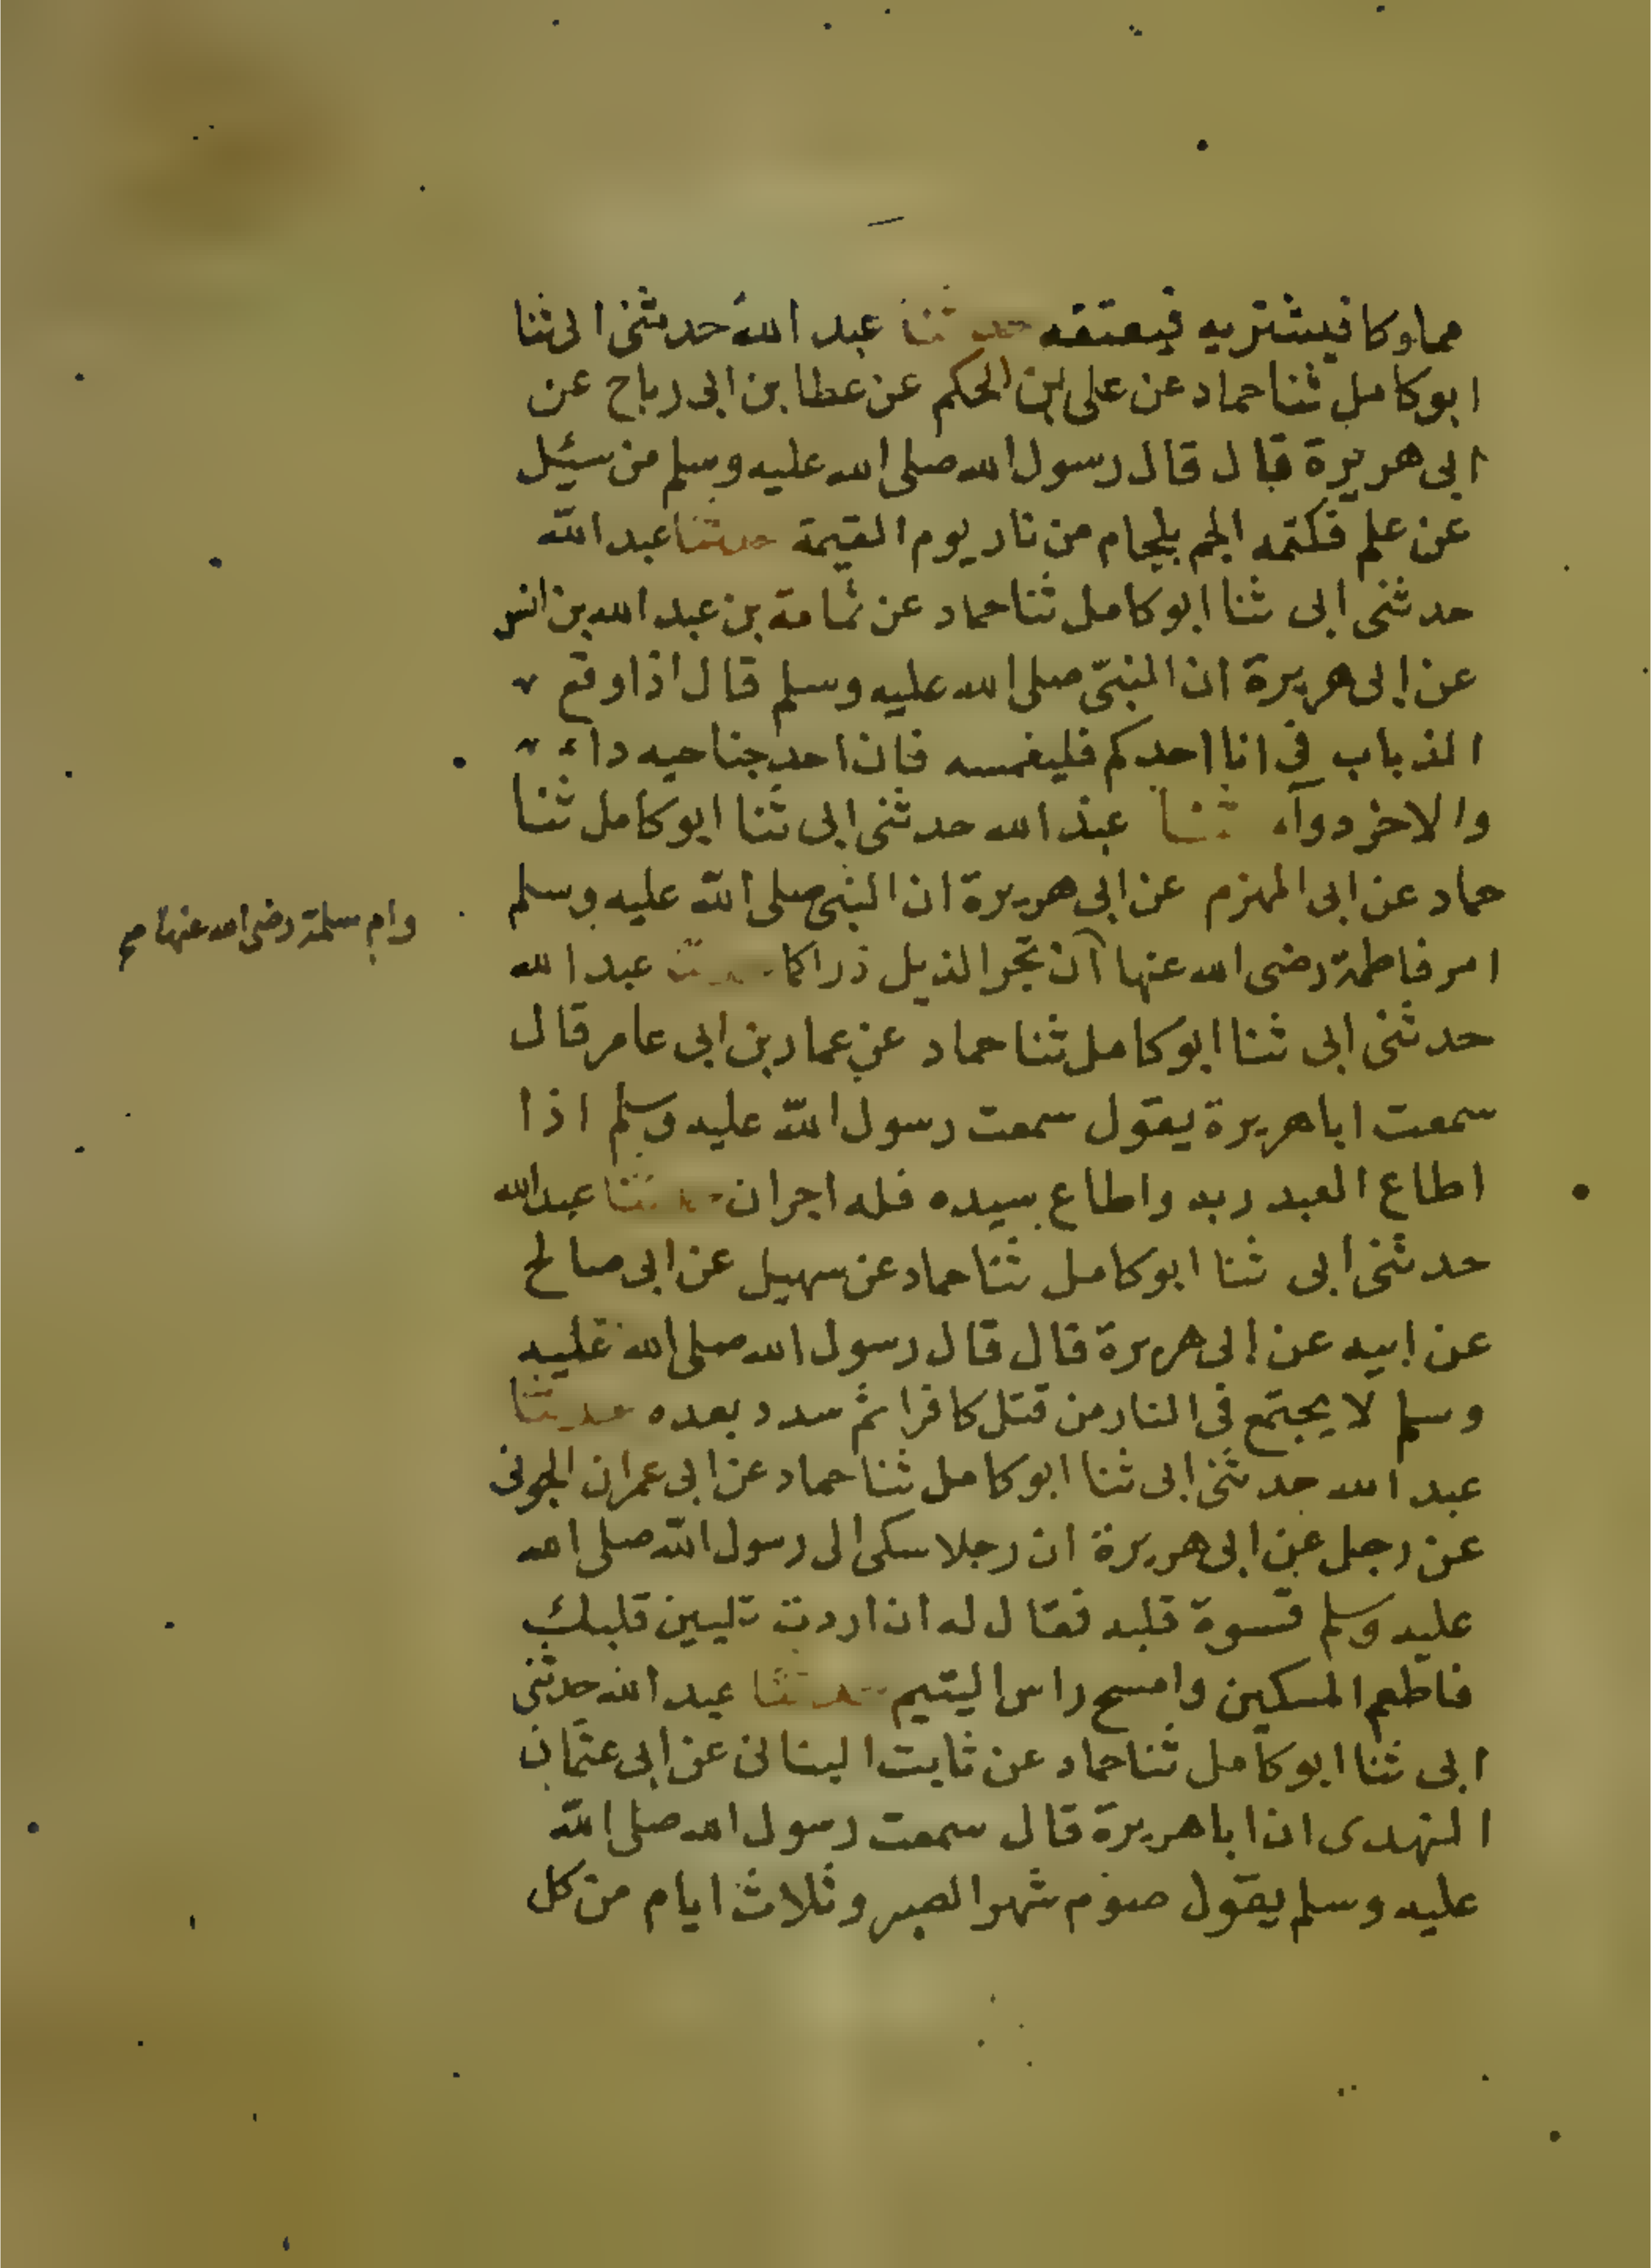 مملوكا فيشتريه فيعتقه حدثنا عبد الله حدثنى ابى ثنا
ابو كامل ثنا حماد عن على بن الحكم عن عطا بن ابى رباح عن
ابى هريرة قال قال رسول الله صلى الله عليه وسلم من سئل
عن علم فكتمه الجم بلجام من نار يوم القيمة حدثنا عبد الله
حدثنى ابى ثنا ابو كامل ثنا حماد عن ثمامة بن عبد الله بن انس
عن ابى هريرة ان النبىّ صلى الله عليه وسلم قال اذا وقع
الذباب فى انا احدكم فليغمسه فان احد جناحيه داء
والاخر دوآء ثنا عبد الله حدثنى ابى ثنا ابو كامل ثنا
حماد عن ابى المهزم عن ابى هريرة ان النبى صلى الله عليه وسلم
وام سلمة رضى الله عنها صح
امر فاطمة رضى الله عنها ان تجر الذيل ذراعا حدثنا عبد الله
حدثنى ابى ثنا ابو كامل ثنا حماد عن عمار بن ابى عامر قال
سمعت ابا هريرة يقول سمعت رسول الله عليه وسلم اذا
اطاع العبد ربه واطاع سيده فله اجران حدثنا عبد الله
حدثنى ابى ثنا ابو كامل ثنا حماد عن سهيل عن ابى صالح
عن ابيه عن ابى هريرة قال قال رسول الله صلى الله عليه
وسلم لا يجتمع فى النار من قتل كافرا ثم سدد بعده حدثنا
عبد الله حدثنى ابى ثنا ابو كامل ثنا حماد عن ابى عمران الجونى
عن رجل عن ابى هريرة ان رجلا سكى الى رسول الله صلى الله
عليه وسلم قسوة قلبه فقال له ان اردت تليين قلبك
فاطعم المسكين وامسح راس اليتيم حدثنا عبد الله حدثنى
ابى ثنا ابو كامل ثنا حماد عن ثابت البنانى عن ابى عثمان
النهدى ان ابا هريرة قال سمعت رسول الله صلى الله
عليه وسلم يقول صوم شهر الصبر وثلاث ايام من كل